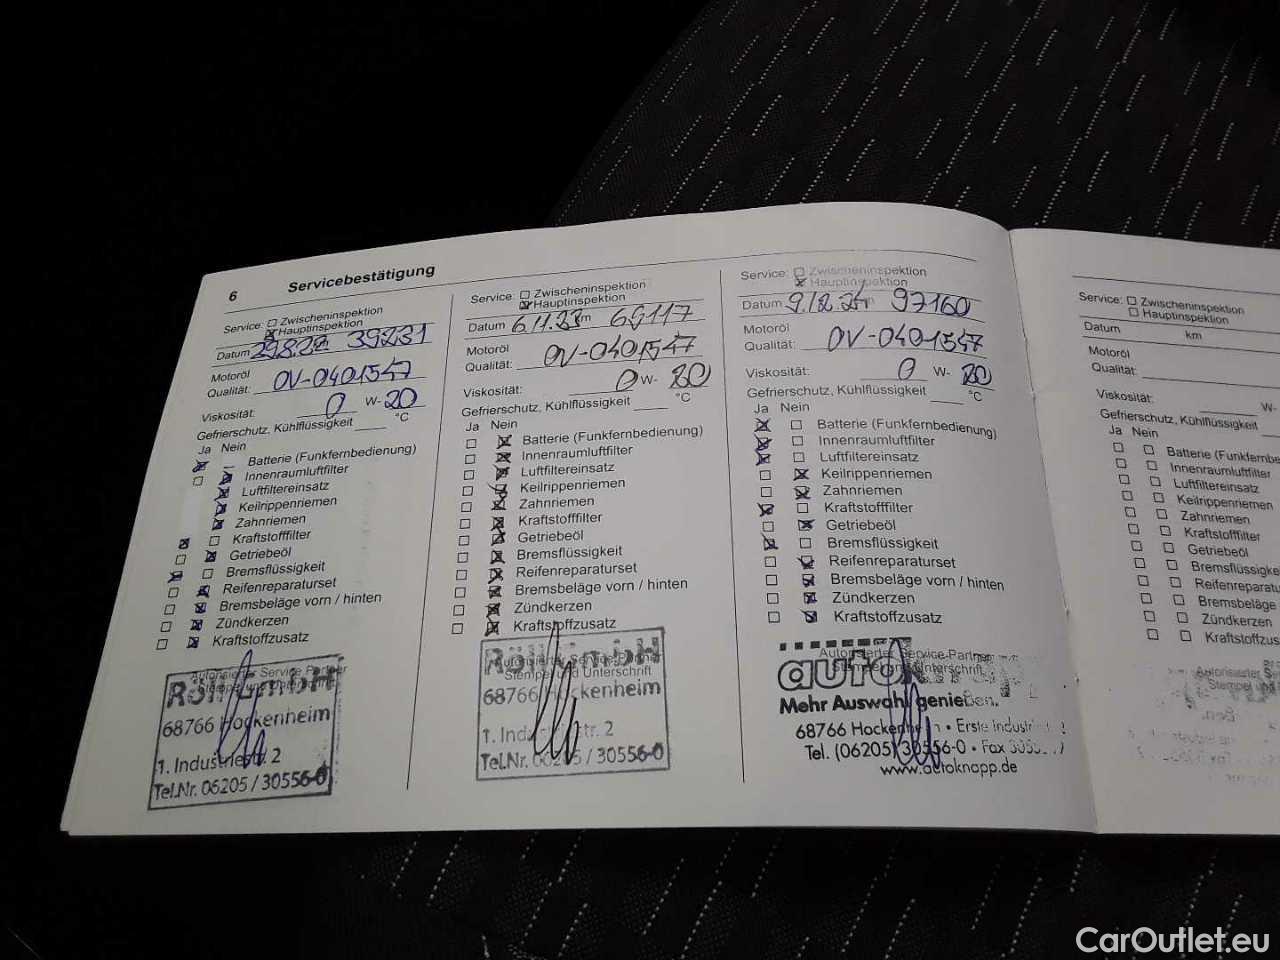 6 Servicebestätigung
Service: Zwischeninspektion
Hauptinspektion
Datum 29.8.22 39231
Motoröl
Qualität: OV-0401547
Viskosität: 0 W- 20
Gefrierschutz, Kühlflüssigkeit °C
Ja Nein
Batterie (Funkfernbedienung)
Innenraumluftfilter
Luftfiltereinsatz
Keilrippenriemen
Zahnriemen
Kraftstofffilter
Getriebeöl
Bremsflüssigkeit
Reifenreparaturset
Bremsbeläge vorn / hinten
Zündkerzen
Kraftstoffzusatz
Autorisierter Service Partner
GmbH
68766 Hockenheim
1. Industriestr. 2
Tel.Nr. 06205 / 30556-0
Service: Zwischeninspektion
Hauptinspektion
Datum 6.11.23 km 69117
Motoröl
Qualität: OV-0401547
Viskosität: 0 W- 20
Gefrierschutz, Kühlflüssigkeit °C
Ja Nein
Batterie (Funkfernbedienung)
Innenraumluftfilter
Luftfiltereinsatz
Keilrippenriemen
Zahnriemen
Kraftstofffilter
Getriebeöl
Bremsflüssigkeit
Reifenreparaturset
Bremsbeläge vorn / hinten
Zündkerzen
Kraftstoffzusatz
Autorisierter Service Partner
Stempel und Unterschrift
GmbH
68766 Hockenheim
1. Industriestr. 2
Tel.Nr. 06205 / 30556-0
Service: Zwischeninspektion
Hauptinspektion
Datum 9.12.24 km 97160
Motoröl
Qualität: OV-0401547
Viskosität: 0 W- 20
Gefrierschutz, Kühlflüssigkeit °C
Ja Nein
Batterie (Funkfernbedienung)
Innenraumluftfilter
Luftfiltereinsatz
Keilrippenriemen
Zahnriemen
Kraftstofffilter
Getriebeöl
Bremsflüssigkeit
Reifenreparaturset
Bremsbeläge vorn / hinten
Zündkerzen
Kraftstoffzusatz
Autorisierter Service-Partner
Stempel und Unterschrift
auto
Mehr Auswahl genießen.
68766 Hockenheim • Erste Industri
Tel. (06205) 30556-0 • Fax
www.autoknapp.de
Service: Zwischeninspektion
Hauptinspektion
Datum km
Motoröl
Qualität:
Viskosität: W-
Gefrierschutz, Kühlflüssigkeit
Ja Nein
Batterie (Funkfernbe
Innenraumluftfilter
Luftfiltereinsatz
Keilrippenriemen
Zahnriemen
Kraftstofffilter
Getriebeöl
Bremsflüssigke
Reifenreparatu
Bremsbeläge
Zündkerzen
Kraftstoffzus
Autorisierter S
Stempel und
CarOutlet.eu